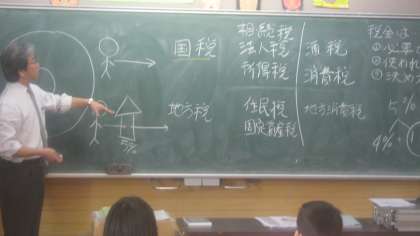 国税
相続税
法人税
所得税
酒税
消費税
地方税
住民税
固定資産税
地方消費税
5%
税金は
①必要
②使われ
③決め
5%
4%